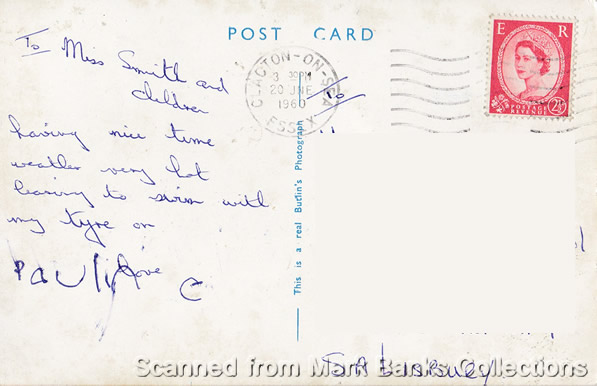 POST CARD
To Miss Smith and
children
having nice time
weather very hot
learing to swim with
my tyre on
love
Paulin
C
CLACTON-ON-SEA
3 30PM
20 JNE
1960
ESSEX
To
E R
POSTAGE
REVENUE
2½
This is a real Butlin's Photograph
Scanned from Mark Banks Collections